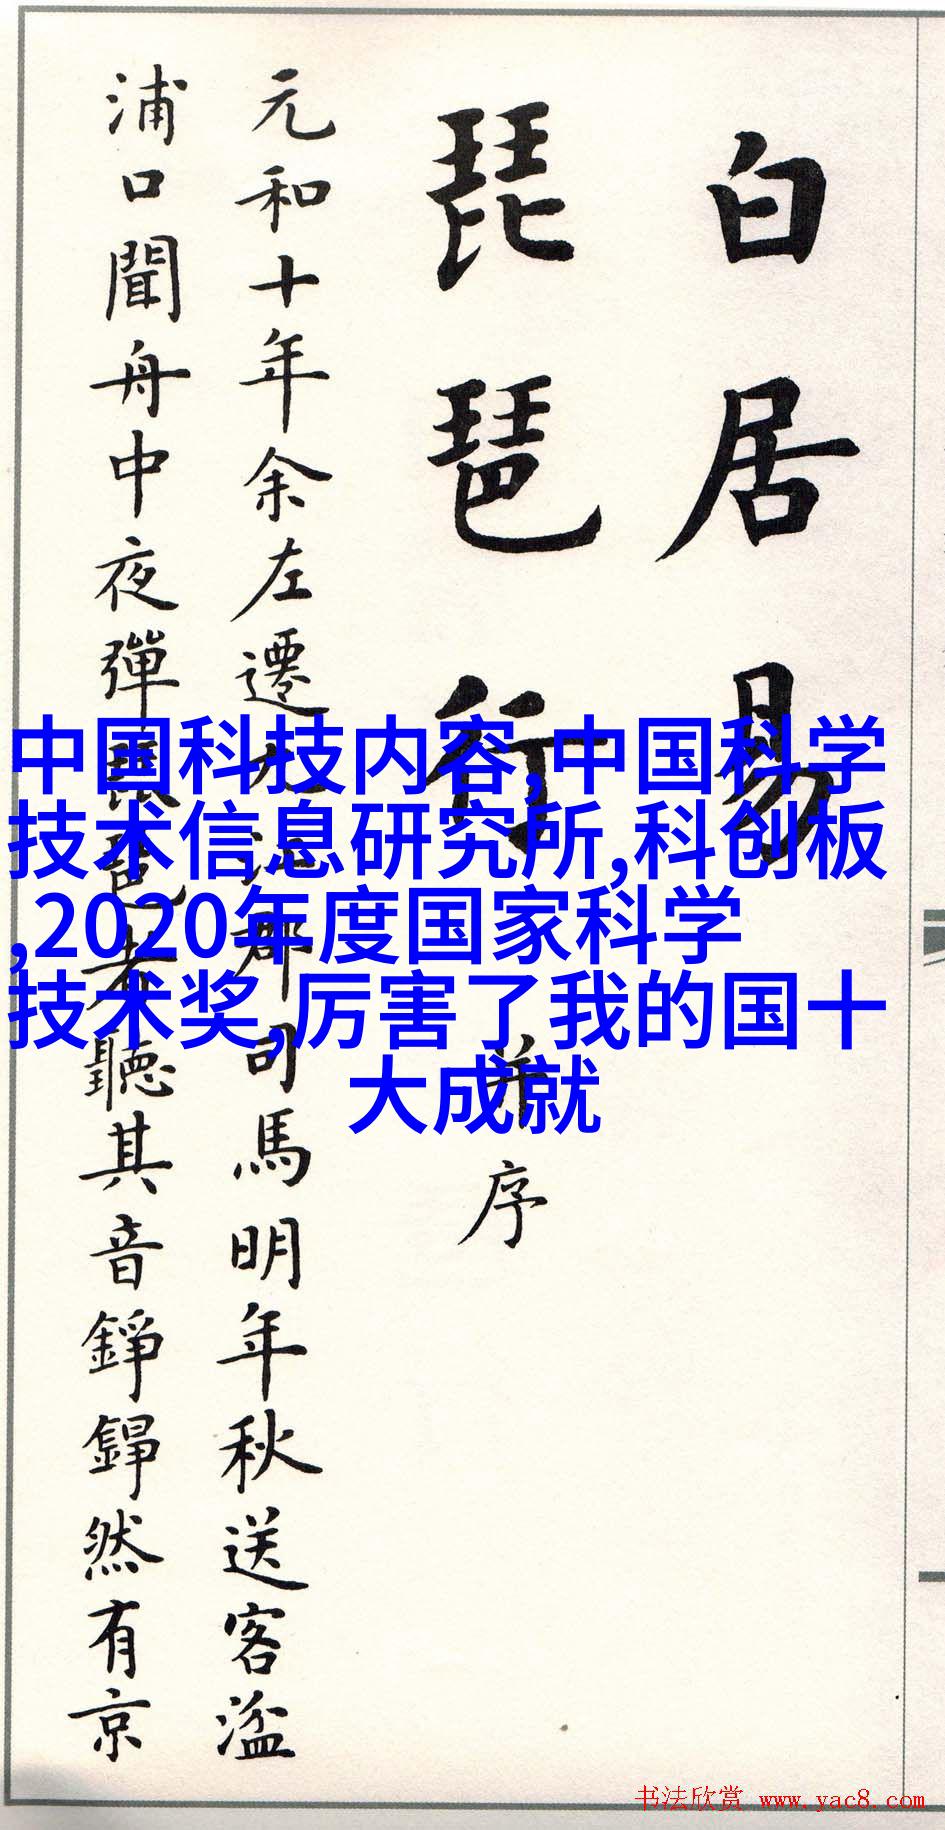 白居易
琵琶行 并序
元和十年余左遷九江郡司馬明年秋送客湓
浦口聞舟中夜彈琵琶者聽其音錚錚然有京
中国科技内容,中国科学
技术信息研究所,科创板
,2020年度国家科学
技术奖,厉害了我的国十
大成就
书法欣赏 www.yac8.com